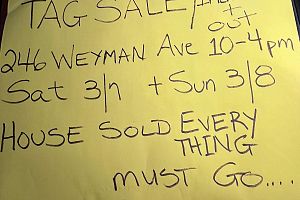 TAG SALE/IN + OUT
246 WEYMAN Ave 10-4pm
Sat 3/7 + Sun 3/8
HOUSE SOLD EVERY
THING
MUST GO....